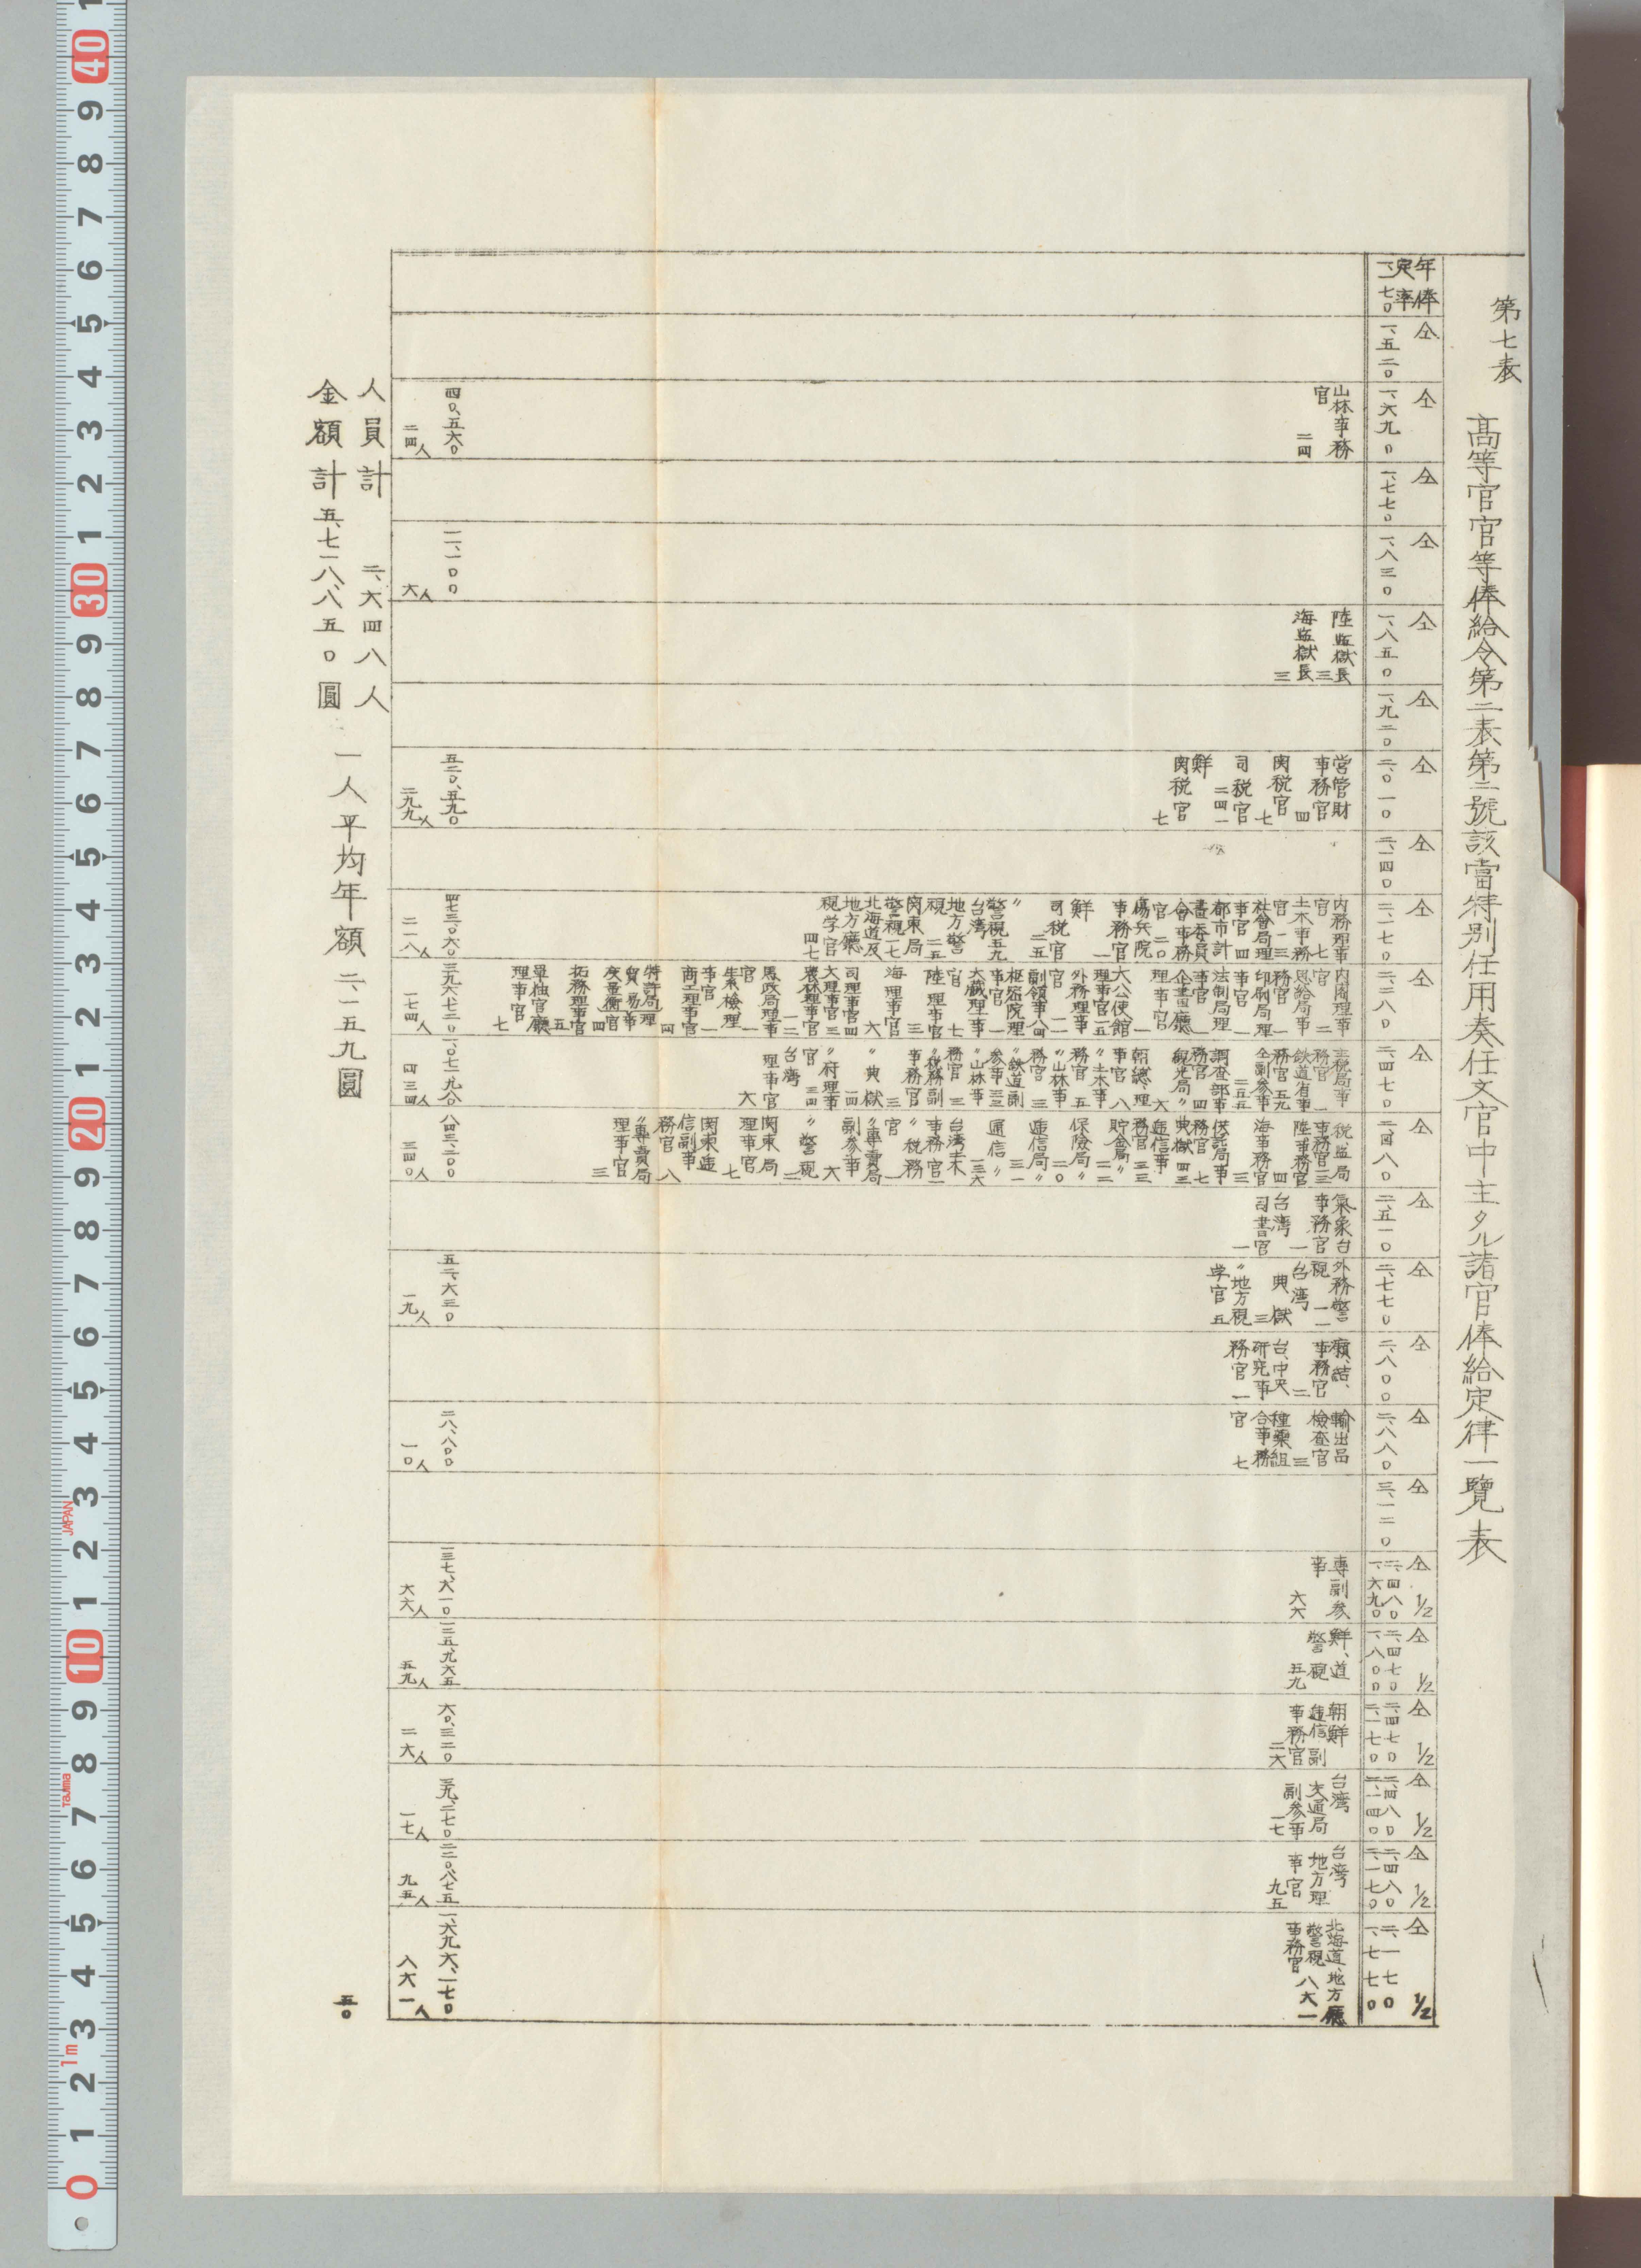 第七表
高等官官等俸給令第二表第二號該當特別任用奏任文官中主タル諸官俸給定律一覽表
年俸定率
仝 一、五二〇
仝 一、六九〇
山林事務官 二四
四〇、五六〇
二四人
仝 一、七七〇
仝 一、八三〇
一一、一〇〇
六人
仝 一、八五〇
陸監獄長 三
海監獄長 三
仝 一、九二〇
仝 二、〇一〇
営管財事務官 四
関税官 七
司税官 二四一
鮮関税官 七
五二〇、五九〇
二九九人
仝 二、一四〇
仝 二、一七〇
内務理事官 七
土木事務官 一三
社會局理事官 四
都市計畫委員會事務官 二〇
傷兵院事務官 一
鮮司税官 二五
〃警視 五九
台湾地方警視 二五
関東局警視 一七
北海道及地方廳視学官 四七
四七三、〇六〇
二一八人
仝 二、二八〇
内閣理事官 二
恩給局事務官 一
印刷局理事官 一
法制局理事官 一
企畫廳理事官 一
大公使館理事官 一五
外務理事官 二
副領事 八四
枢密院理事官 一
大蔵理事官 七
陸理事官 三
海理事官 六
司理事官 四
文理事官 三
農林理事官 一二
馬政局理事官 一
生糸検理事官 一
商工理事官 四
特許局理事官
貿易〃
度量衡官 四
拓務理事官 五
單独官廳理事官 七
三九六、七二〇
一七四人
仝 二、四七〇
主税局事務官 一
鉄道省事務官 五九
仝副参事 二五五
調査部事務官 四
観光局〃 六
朝総、理事官 八
〃土木事務官 五
〃山林事務官 三
〃鉄道副参事 三三
〃山林事務官 三
〃税務副事務官 三
〃典獄 一四
〃府理事官 三四
台湾理事官 六
一、〇七一、九八〇
四三四人
仝 二、四八〇
税監局事務官 三
陸事務官 四
海事務官 三
供託局事務官 七
典獄 四三
逓信事務官 三三
貯金局〃 二二
保険局〃 二〇
逓信局〃 三一
逓信〃 一三六
台湾事務官 二
〃税務官 一
〃専賣局副参事 六
〃警視 二
関東局理事官 七
関東逓信副事務官 八
〃専賣局理事官 三
八四三、二〇〇
三四〇人
仝 二、五一〇
氣象台事務官 一
台湾司書官 一
仝 二、七七〇
外務警視 一一
台湾典獄 三
〃地方視学官 五
五二、六三〇
一九人
仝 二、八〇〇
癩、結、事務官 二
台、中央研究事務官 一
仝 二、八八〇
輸出品検査官 三
種薬組合事務官 七
二八、八〇〇
一〇人
仝 三、一二〇
仝 1/2 二、四八〇 一、六九〇
専副参事 六六
一三七、六一〇
六六人
仝 1/2 二、四七〇 一、八〇〇
鮮、道警視 五九
一三五、九六五
五九人
仝 1/2 二、四七〇 二、一七〇
朝鮮逓信副事務官 二六
六〇、三二〇
二六人
仝 1/2 二、四八〇 二、一四〇
台湾交通局副参事 一七
三九、二七〇
一七人
仝 1/2 二、四八〇 二、一七〇
台湾地方理事官 九五
二二〇、八七五
九五人
仝 1/2 二、一七〇 一、七七〇
北海道、地方廳警視事務官 八六一
一、六九六、一七〇
八六一人
人員計 二、六四八人
金額計 五、七一八、八五〇圓
一人平均年額 二、一五九圓
五〇